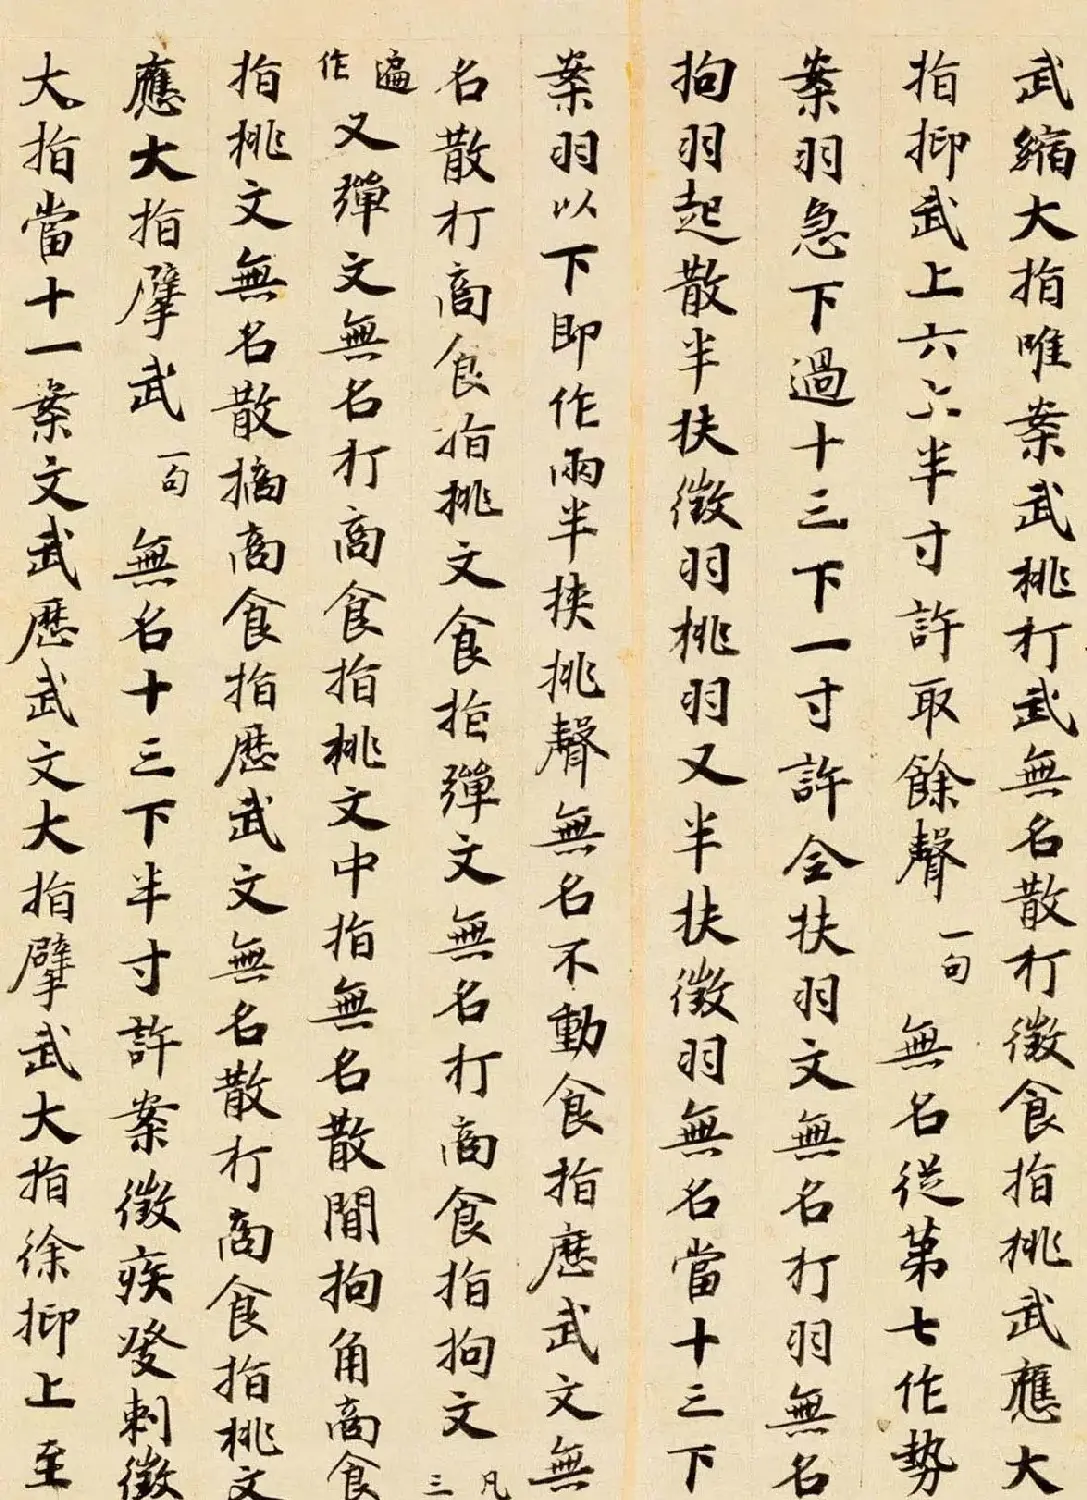 武縮大指唯案武桃打武無名散打徵食指桃武應大
指抑武上六六半寸許取餘聲一句無名從第七作勢
案羽急下過十三下一寸許全扶羽文無名打羽無名
拘羽起散半扶徵羽桃羽又半扶徵羽無名當十三下
案羽以下即作兩半挾挑聲無名不動食指歷武文無
名散打商食指桃文食指彈文無名打商食指拘文凡三
遍作又彈文無名打商食指桃文中指無名散間拘角商食
指桃文無名散摘商食指歷武文無名散打商食指桃文
應大指擘武一句無名十三下半寸許案徵疾發刺徵
大指當十一案文武歷武文大指擘武大指徐抑上至